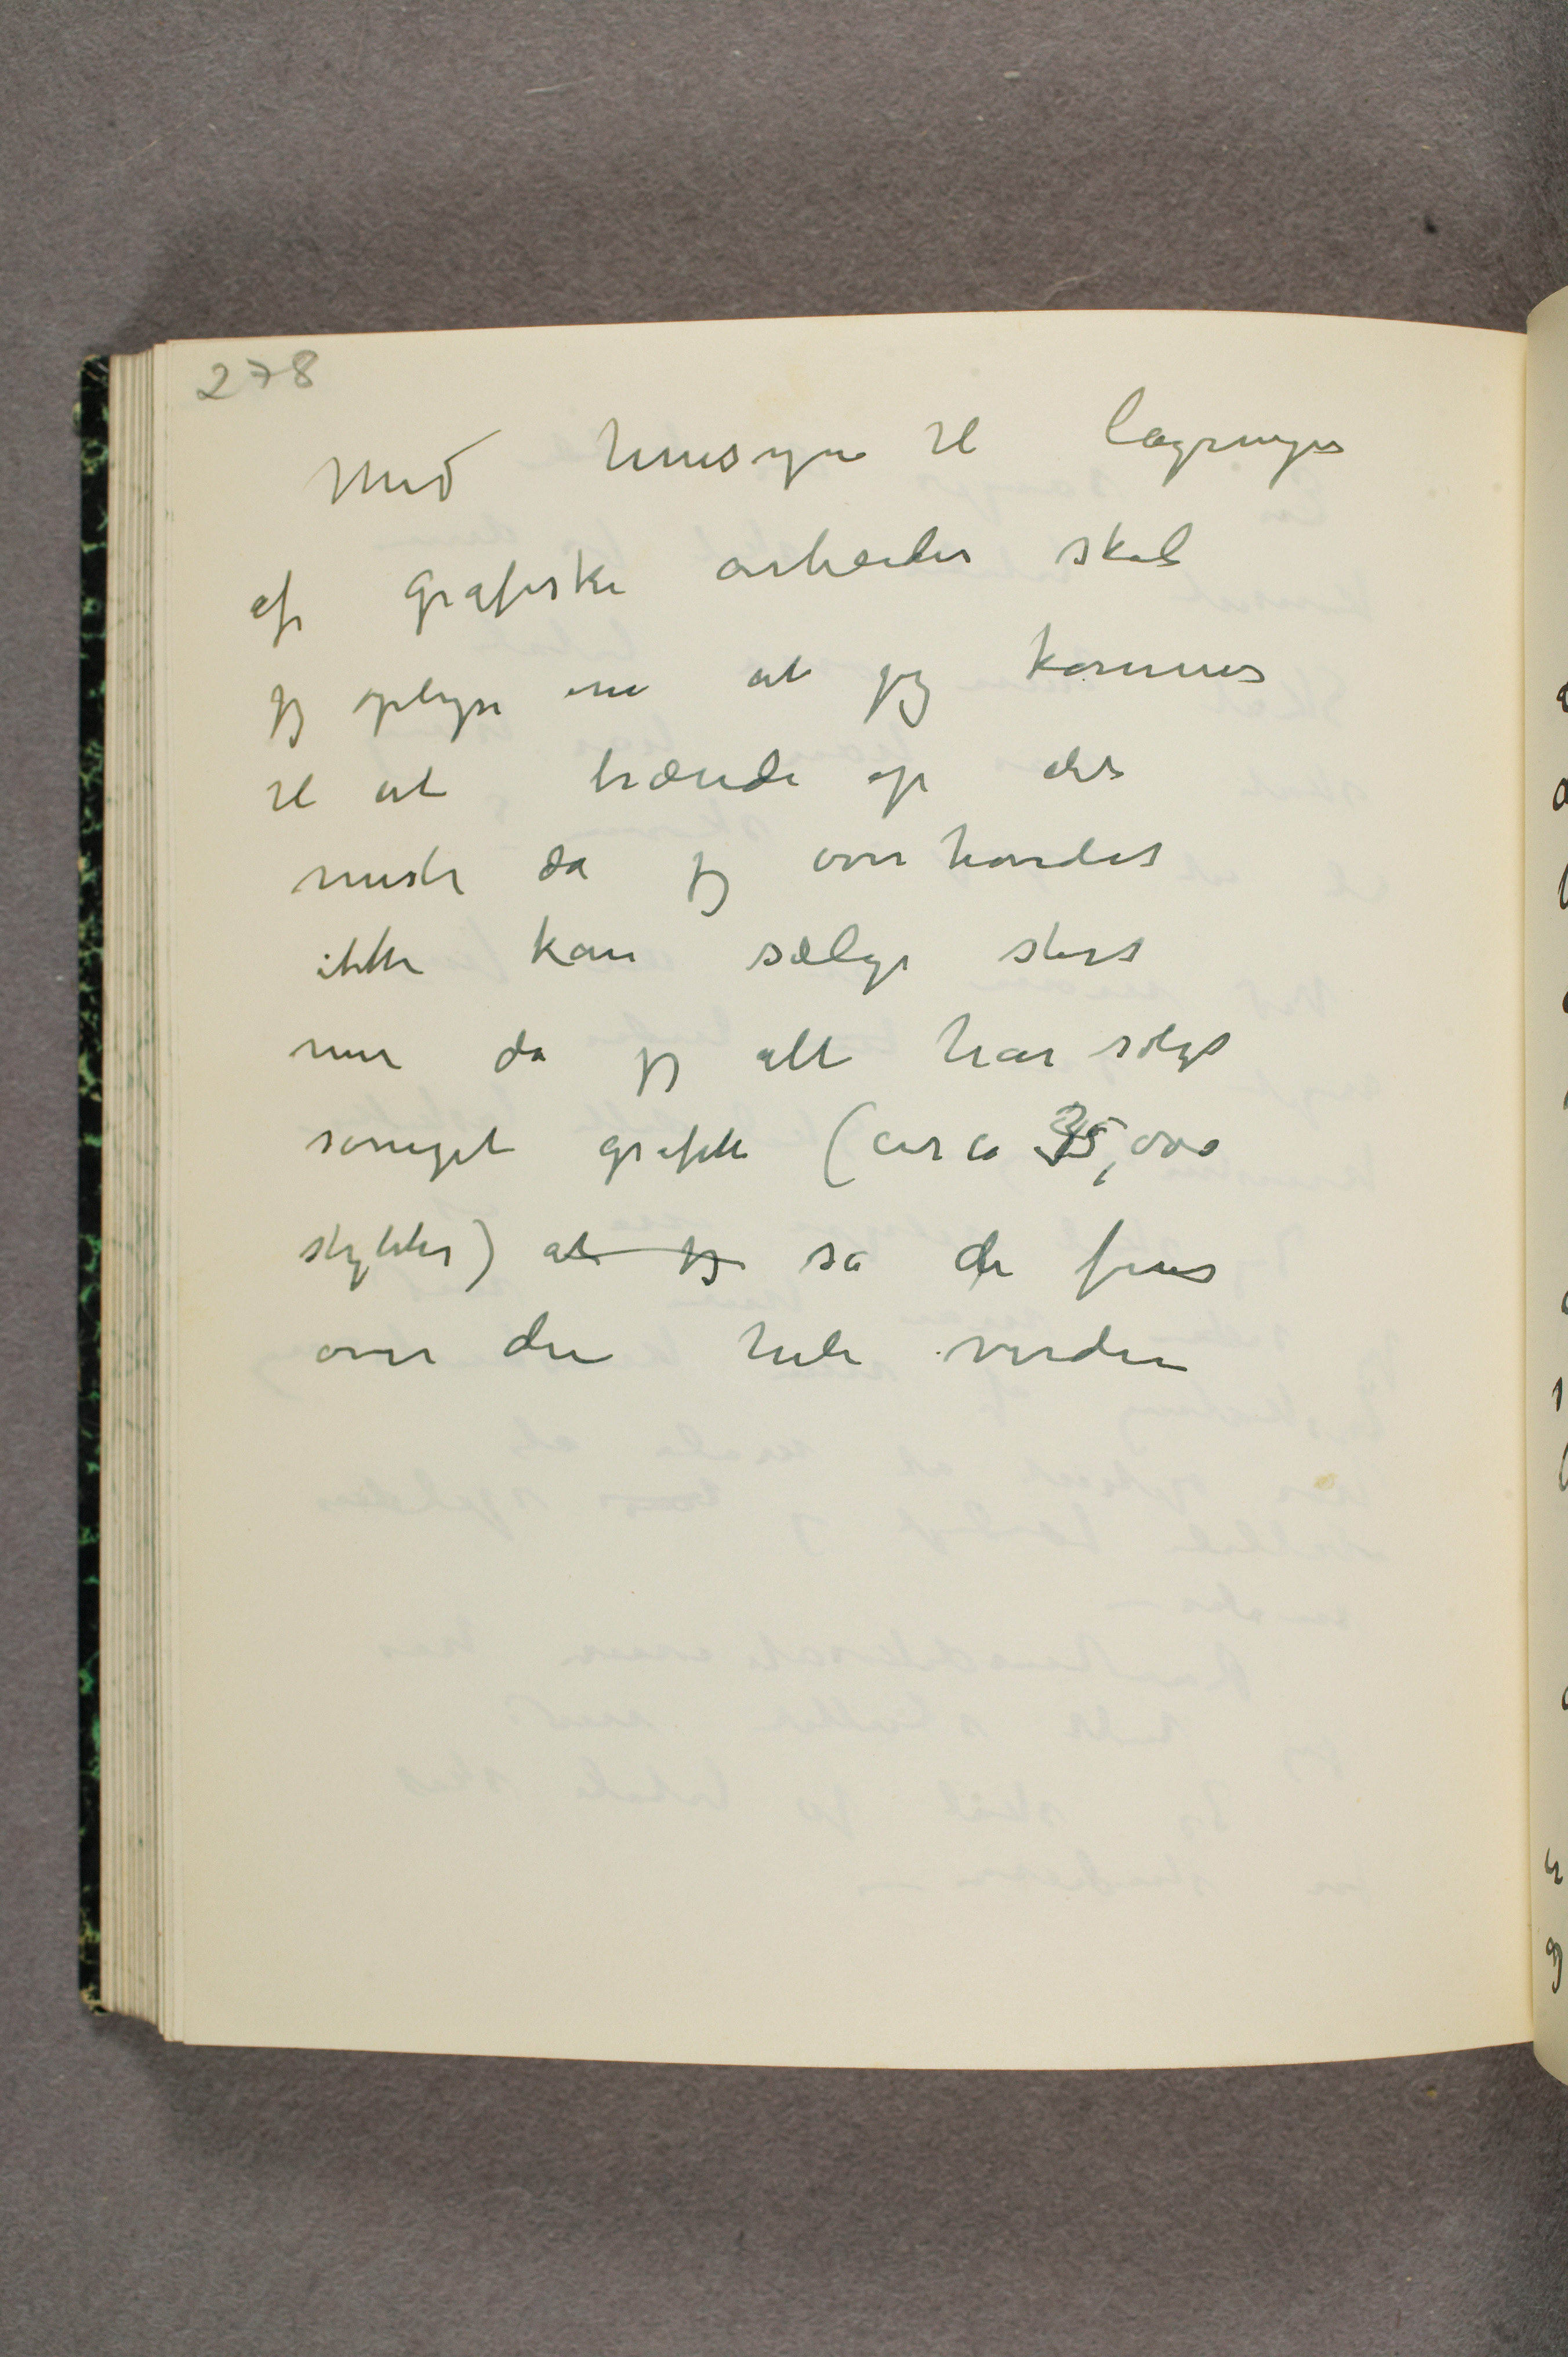 278
Med hensyn til lagringen
af grafiske arbeider skal
jeg oplyse om at jeg kommer
til at brænde op det
meste da jeg overhovedet
ikke kan sælge stort
mer da jeg alt har solgt
såmeget grafikk (circa 35,000
stykker) at jeg så de fines
over den hele verden